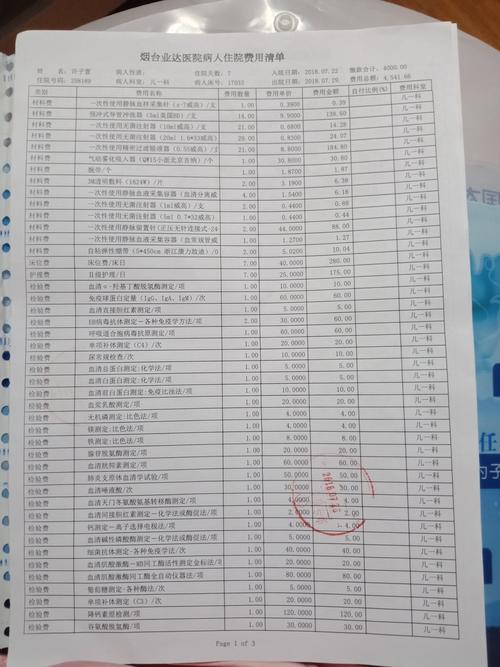 烟台业达医院病人住院费用清单
姓 名：许子萱 病人性质： 住院天数：7 入院日期：2018.07.22 缴款合计：4000.00
住院号码：258189 病人科室：儿一科 病人床号：17033 出院日期：2018.07.29 费用总额：4,541.66
费用类别 费用名称 费用数量 费用单价 费用金额 自付比例(%) 费用科室
材料费 一次性使用静脉血样采集针 1.00 0.3900 0.39 儿一科
材料费 预冲式导管冲洗器(5ml美国BD)/支 14.00 9.9000 138.60 儿一科
材料费 一次性使用无菌注射器(10ml威高)/支 21.00 0.6800 14.28 儿一科
材料费 一次性使用无菌注射器(20ml 1.6*33威高) 29.00 0.8300 24.07 儿一科
材料费 一次性使用精密过滤输液器(0.55威高)/支 21.00 8.8000 184.80 儿一科
材料费 气动雾化吸入器(QW15小面北京吉纳)/个 1.00 30.8000 30.80 儿一科
材料费 腕带/个 1.00 1.8700 1.87 儿一科
材料费 3M透明敷料(1624W)/片 2.00 3.1900 6.38 儿一科
材料费 一次性使用静脉血液采集容器(血清分离威 4.00 1.5400 6.16 儿一科
材料费 一次性使用无菌注射器(1ml威高)/支 2.00 0.4400 0.88 儿一科
材料费 一次性使用无菌注射器(5ml 0.7*32威高) 1.00 0.4400 0.44 儿一科
材料费 一次性使用静脉留置针(正压无针连接式-24 2.00 44.0000 88.00 儿一科
材料费 一次性使用静脉血液采集容器(血常规管威 1.00 1.2700 1.27 儿一科
材料费 自粘弹性绷带(5*450cm 浙江康力迪)/ 2.00 5.0200 10.04 儿一科
床位费 床位费/床日 7.00 40.0000 280.00 儿一科
护理费 Ⅱ级护理/日 7.00 25.0000 175.00 儿一科
检验费 血清α-羟基丁酸脱氢酶测定/项 1.00 10.0000 10.00 儿一科
检验费 免疫球蛋白定量(IgG,IgA,IgM)/次 1.00 60.0000 60.00 儿一科
检验费 血清直接胆红素测定/项 1.00 5.0000 5.00 儿一科
检验费 EB病毒抗体测定-各种免疫学方法/项 2.00 30.0000 60.00 儿一科
检验费 呼吸道合胞病毒抗原测定/项 1.00 60.0000 60.00 儿一科
检验费 单项补体测定(C4)/次 1.00 20.0000 20.00 儿一科
检验费 尿常规检查/次 1.00 10.0000 10.00 儿一科
检验费 血清总蛋白测定:化学法/项 1.00 5.0000 5.00 儿一科
检验费 血清白蛋白测定:化学法/项 1.00 5.0000 5.00 儿一科
检验费 血清前白蛋白测定:免疫比浊法/项 1.00 10.0000 10.00 儿一科
检验费 血浆乳酸测定/项 1.00 20.0000 20.00 儿一科
检验费 无机磷测定:比色法/项 1.00 4.0000 4.00 儿一科
检验费 镁测定:比色法/项 1.00 4.0000 4.00 儿一科
检验费 铁测定:比色法/项 1.00 8.0000 8.00 儿一科
检验费 腺苷脱氨酶测定/项 1.00 20.0000 20.00 儿一科
检验费 血清胱抑素测定/项 1.00 60.0000 60.00 儿一科
检验费 肺炎支原体血清学试验/项 1.00 50.0000 50.00 儿一科
检验费 血清唾液酸/次 1.00 30.0000 30.00 儿一科
检验费 血清天门冬氨酸氨基转移酶测定/项 1.00 4.0000 4.00 儿一科
检验费 血清间接胆红素测定-化学法或酶促法/项 1.00 2.0000 2.00 儿一科
检验费 钙测定-离子选择电极法/项 1.00 4.0000 4.00 儿一科
检验费 血清碱性磷酸酶测定-化学法或酶促法/项 1.00 5.0000 5.00 儿一科
检验费 细菌抗体测定-各种免疫学法/次 1.00 40.0000 40.00 儿一科
检验费 血清肌酸激酶-MB同工酶活性测定金标法/项 1.00 20.0000 20.00 儿一科
检验费 血清肌酸激酶同工酶全自动仪器法/项 1.00 80.0000 80.00 儿一科
检验费 葡萄糖测定-各种酶法/次 1.00 5.0000 5.00 儿一科
检验费 单项补体测定(C3)/次 1.00 20.0000 20.00 儿一科
检验费 降钙素原检测/项 1.00 120.0000 120.00 儿一科
检验费 谷氨酸脱氢酶/项 1.00 30.0000 30.00 儿一科
Page 1 of 3